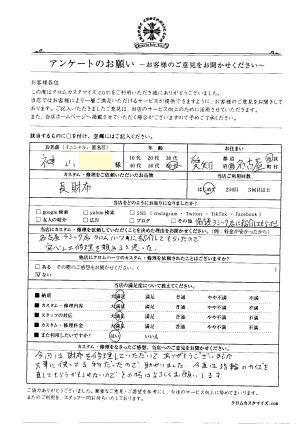 アンケートのお願い ～お客様のご意見をお聞かせください～
お客様各位
この度はクロムカスタマイズ.comをご利用いただき誠にありがとうございました。
当店ではお客様により一層ご満足いただけるサービスが提供できますように、お客様のご意見をお聞きして
おります。ご記入いただきましたご意見は、当店のサービス向上のために活用させていただきます。
また、当店ホームページへ掲載させていただく場合がございますので予めご了承ください。
該当するものに○を付け、空欄にはご記入ください。
お名前（イニシャル、匿名可） 年 齢 お住まい
様 10代 20代 30代 愛知 都道府県 名古屋 市
カスタム・修理をご依頼いただいたお品物 当店ご利用回数
長財布 はじめて 2回目 3回目以上
当店をどのようにお知りになりましたか？
google検索 yahoo検索 SNS（Instagram・Twitter・TikTok・Facebook）
友人の紹介 広告 ブログ その他
カスタム・修理を依頼していただくことを決めた理由をお聞かせください。
安心して修理を頼めると思った。
他店にクロムハーツのカスタム・修理を依頼されたことはございますか？
ある その際のご感想をお聞かせください
ない
当店の満足度について教えてください。
納期 大満足 満足 普通 やや不満 不満
カスタム・修理内容 大満足 満足 普通 やや不満 不満
スタッフの対応 大満足 満足 普通 やや不満 不満
カスタム・修理料金 大満足 満足 普通 やや不満 不満
また利用したいですか？ はい いいえ
カスタム・修理をなさったご感想、当店へのご意見をお聞かせください。
今回は財布を修理していただいてありがとうございました
大事に使ってる物だったので助かりました。今後は指輪のサイズを
直してもらうかもしれないのでその時はよろしくお願いします
ご協力ありがとうございました。貴重なご意見・ご要望を参考にし、今後のサービス向上に努めてまいります。
クロムカスタマイズ.com